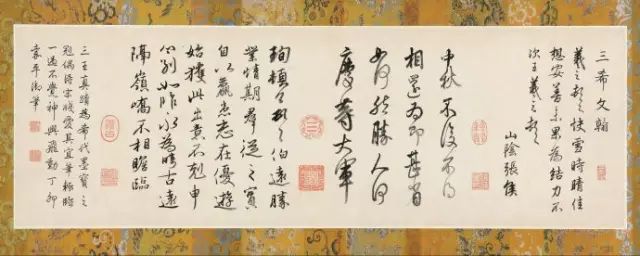 三希文翰
羲之頓首快雪時晴佳
想安善未果為結力不
次王羲之頓首
山陰張侯
中秋不復不得
相還為即甚省
如何然勝人何
慶等大軍
珣頓首頓首伯遠勝
業情期群從之寶
自以羸患志在優遊
始獲此出意不剋申
分別如昨永為疇古遠
隔嶺嶠不相瞻臨
三王真蹟為希代墨寶之
冠偶得
一過不覺神興飛動丁卯